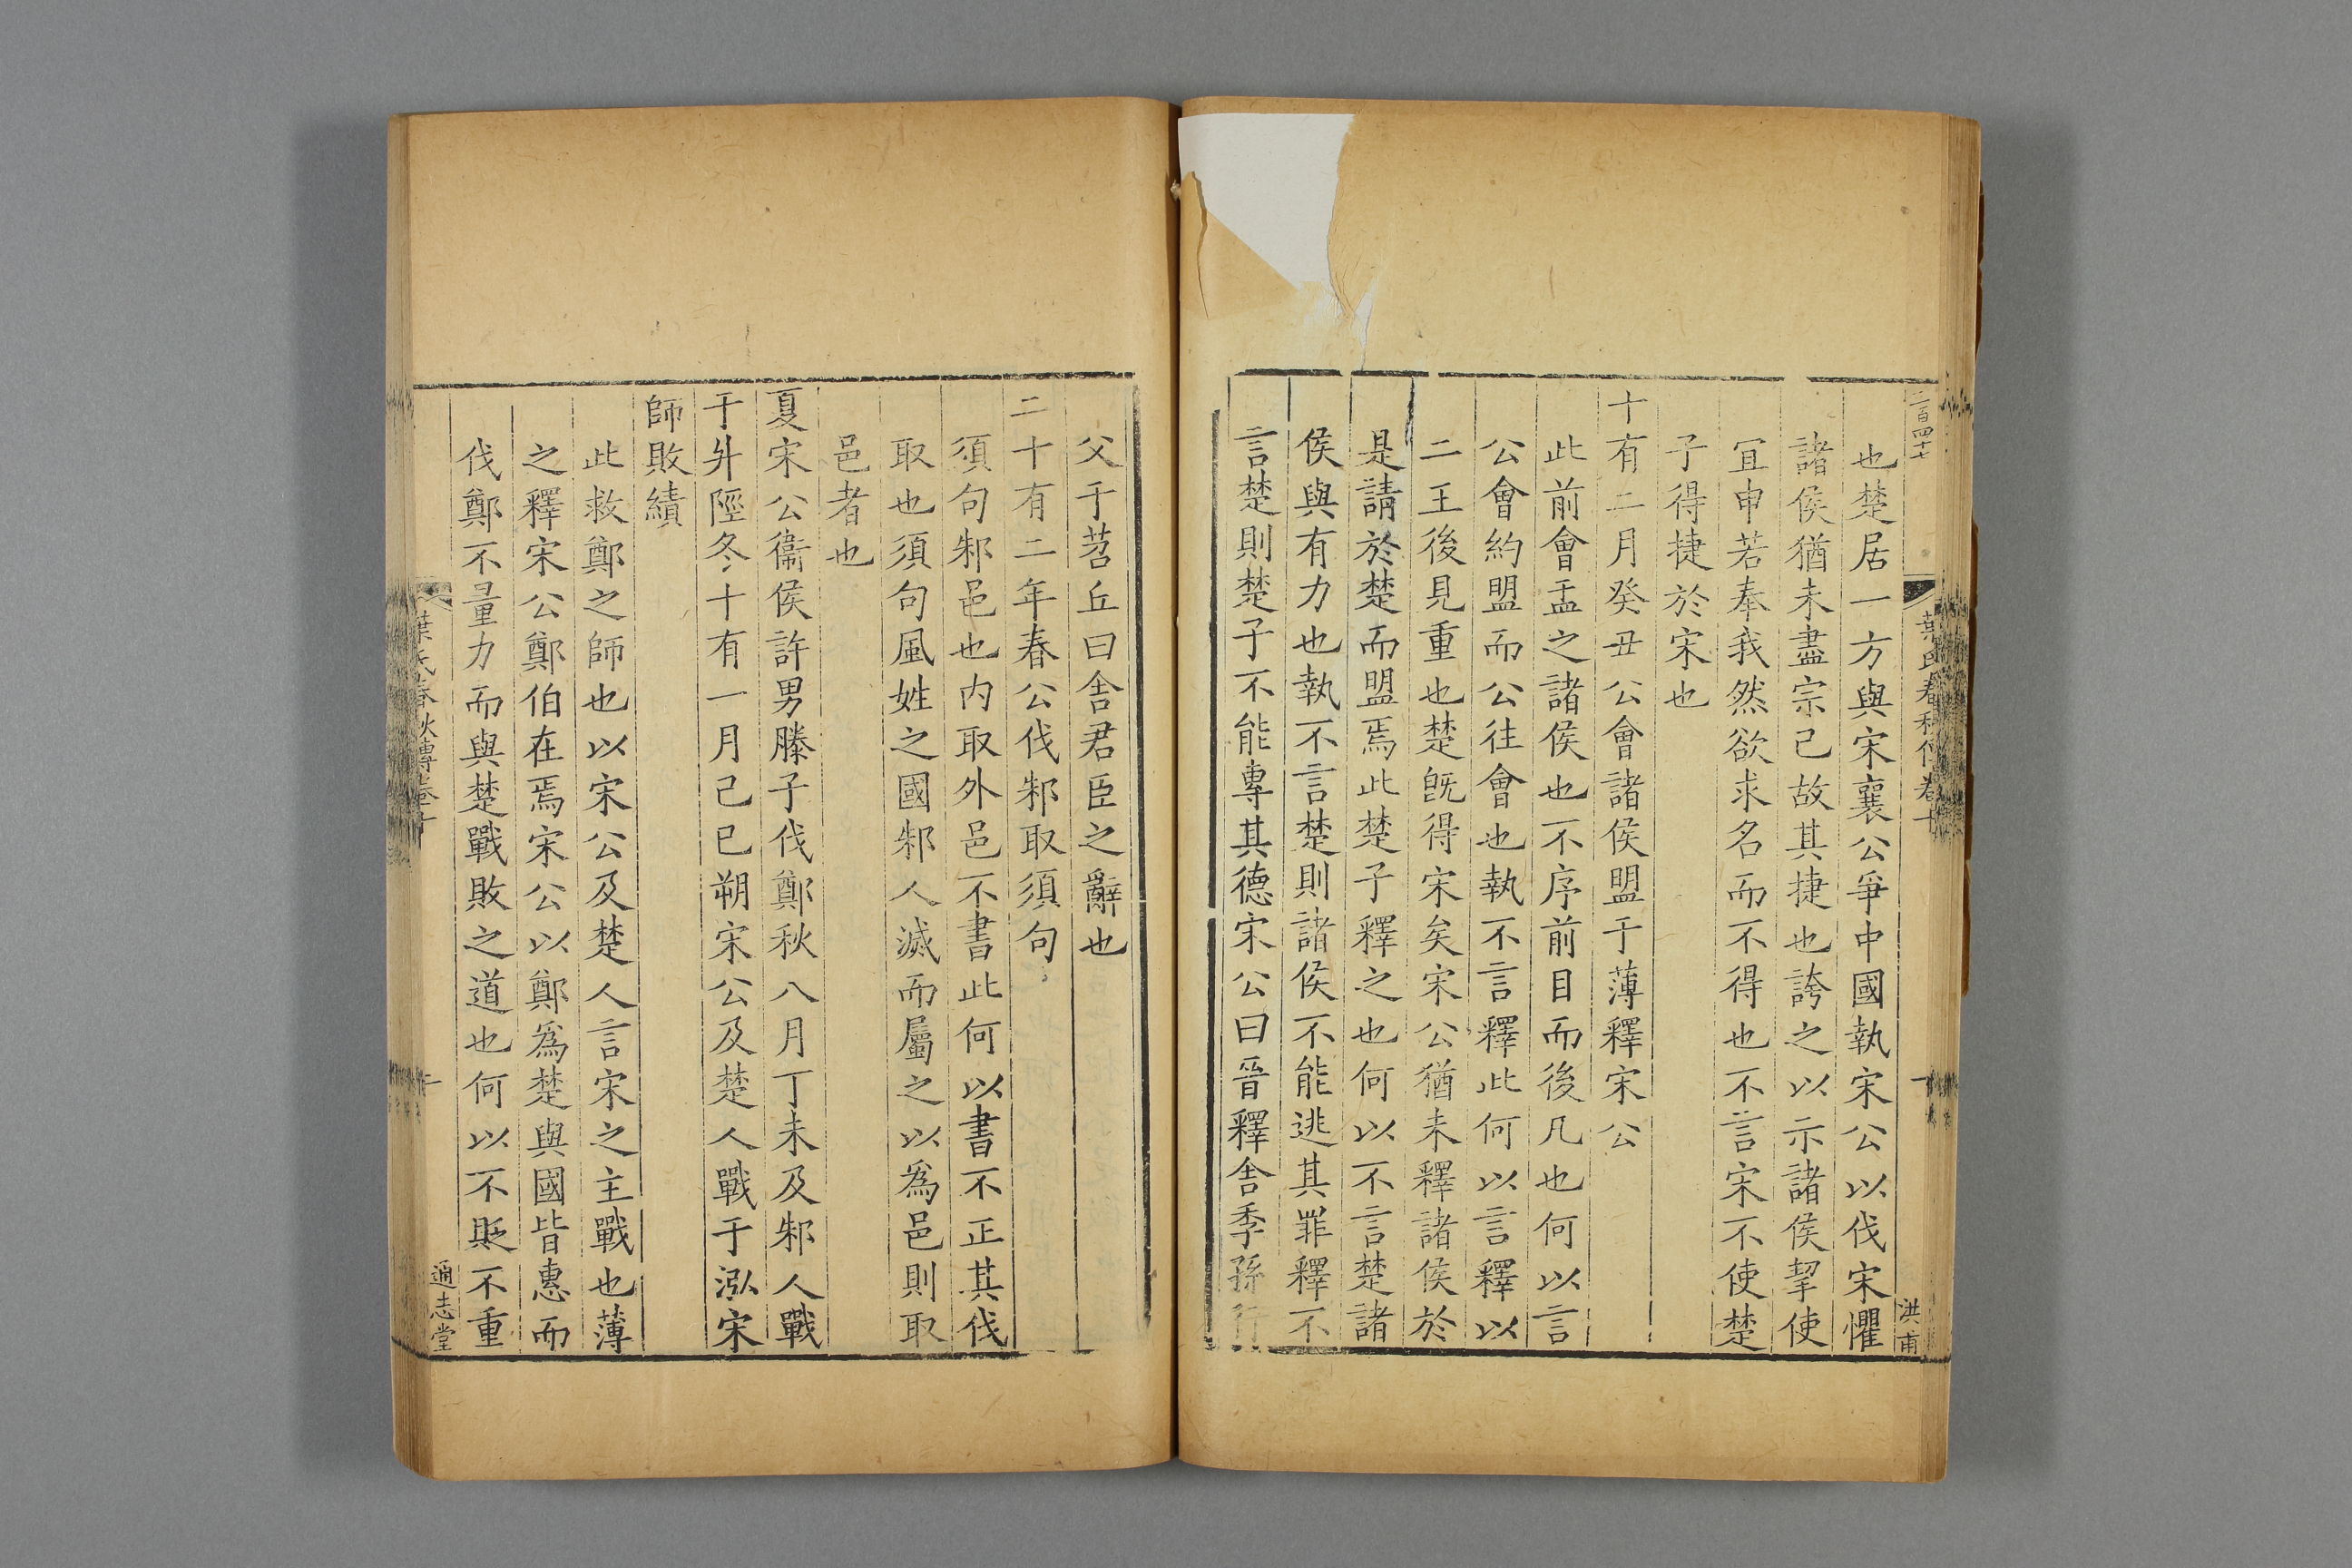 二百四十七
葉氏春秋傳卷十
洪甫
也楚居一方與宋襄公爭中國執宋公以伐宋懼
諸侯猶未盡宗己故其捷也誇之以示諸侯挈使
宜申若奉我然欲求名而不得也不言宋不使楚
子得捷於宋也
十有二月癸丑公會諸侯盟于薄釋宋公
此前會盂之諸侯也不序前目而後凡也何以言
公會約盟而公往會也執不言釋此何以言釋以
二王後見重也楚旣得宋矣宋公猶未釋諸侯於
是請於楚而盟焉此楚子釋之也何以不言楚諸
侯與有力也執不言楚則諸侯不能逃其罪釋不
言楚則楚子不能專其德宋公曰晉釋舍季孫行
父于苕丘曰舍君臣之辭也
二十有二年春公伐邾取須句
須句邾邑也内取外邑不書此何以書不正其伐
取也須句風姓之國邾人滅而屬之以爲邑則取
邑者也
夏宋公衞侯許男滕子伐鄭秋八月丁未及邾人戰
于升陘冬十有一月己巳朔宋公及楚人戰于泓宋
師敗績
此救鄭之師也以宋公及楚人言宋之主戰也薄
之釋宋公鄭伯在焉宋公以鄭爲楚與國皆惠而
伐鄭不量力而與楚戰敗之道也何以不貶不重
葉氏春秋傳卷十
通志堂